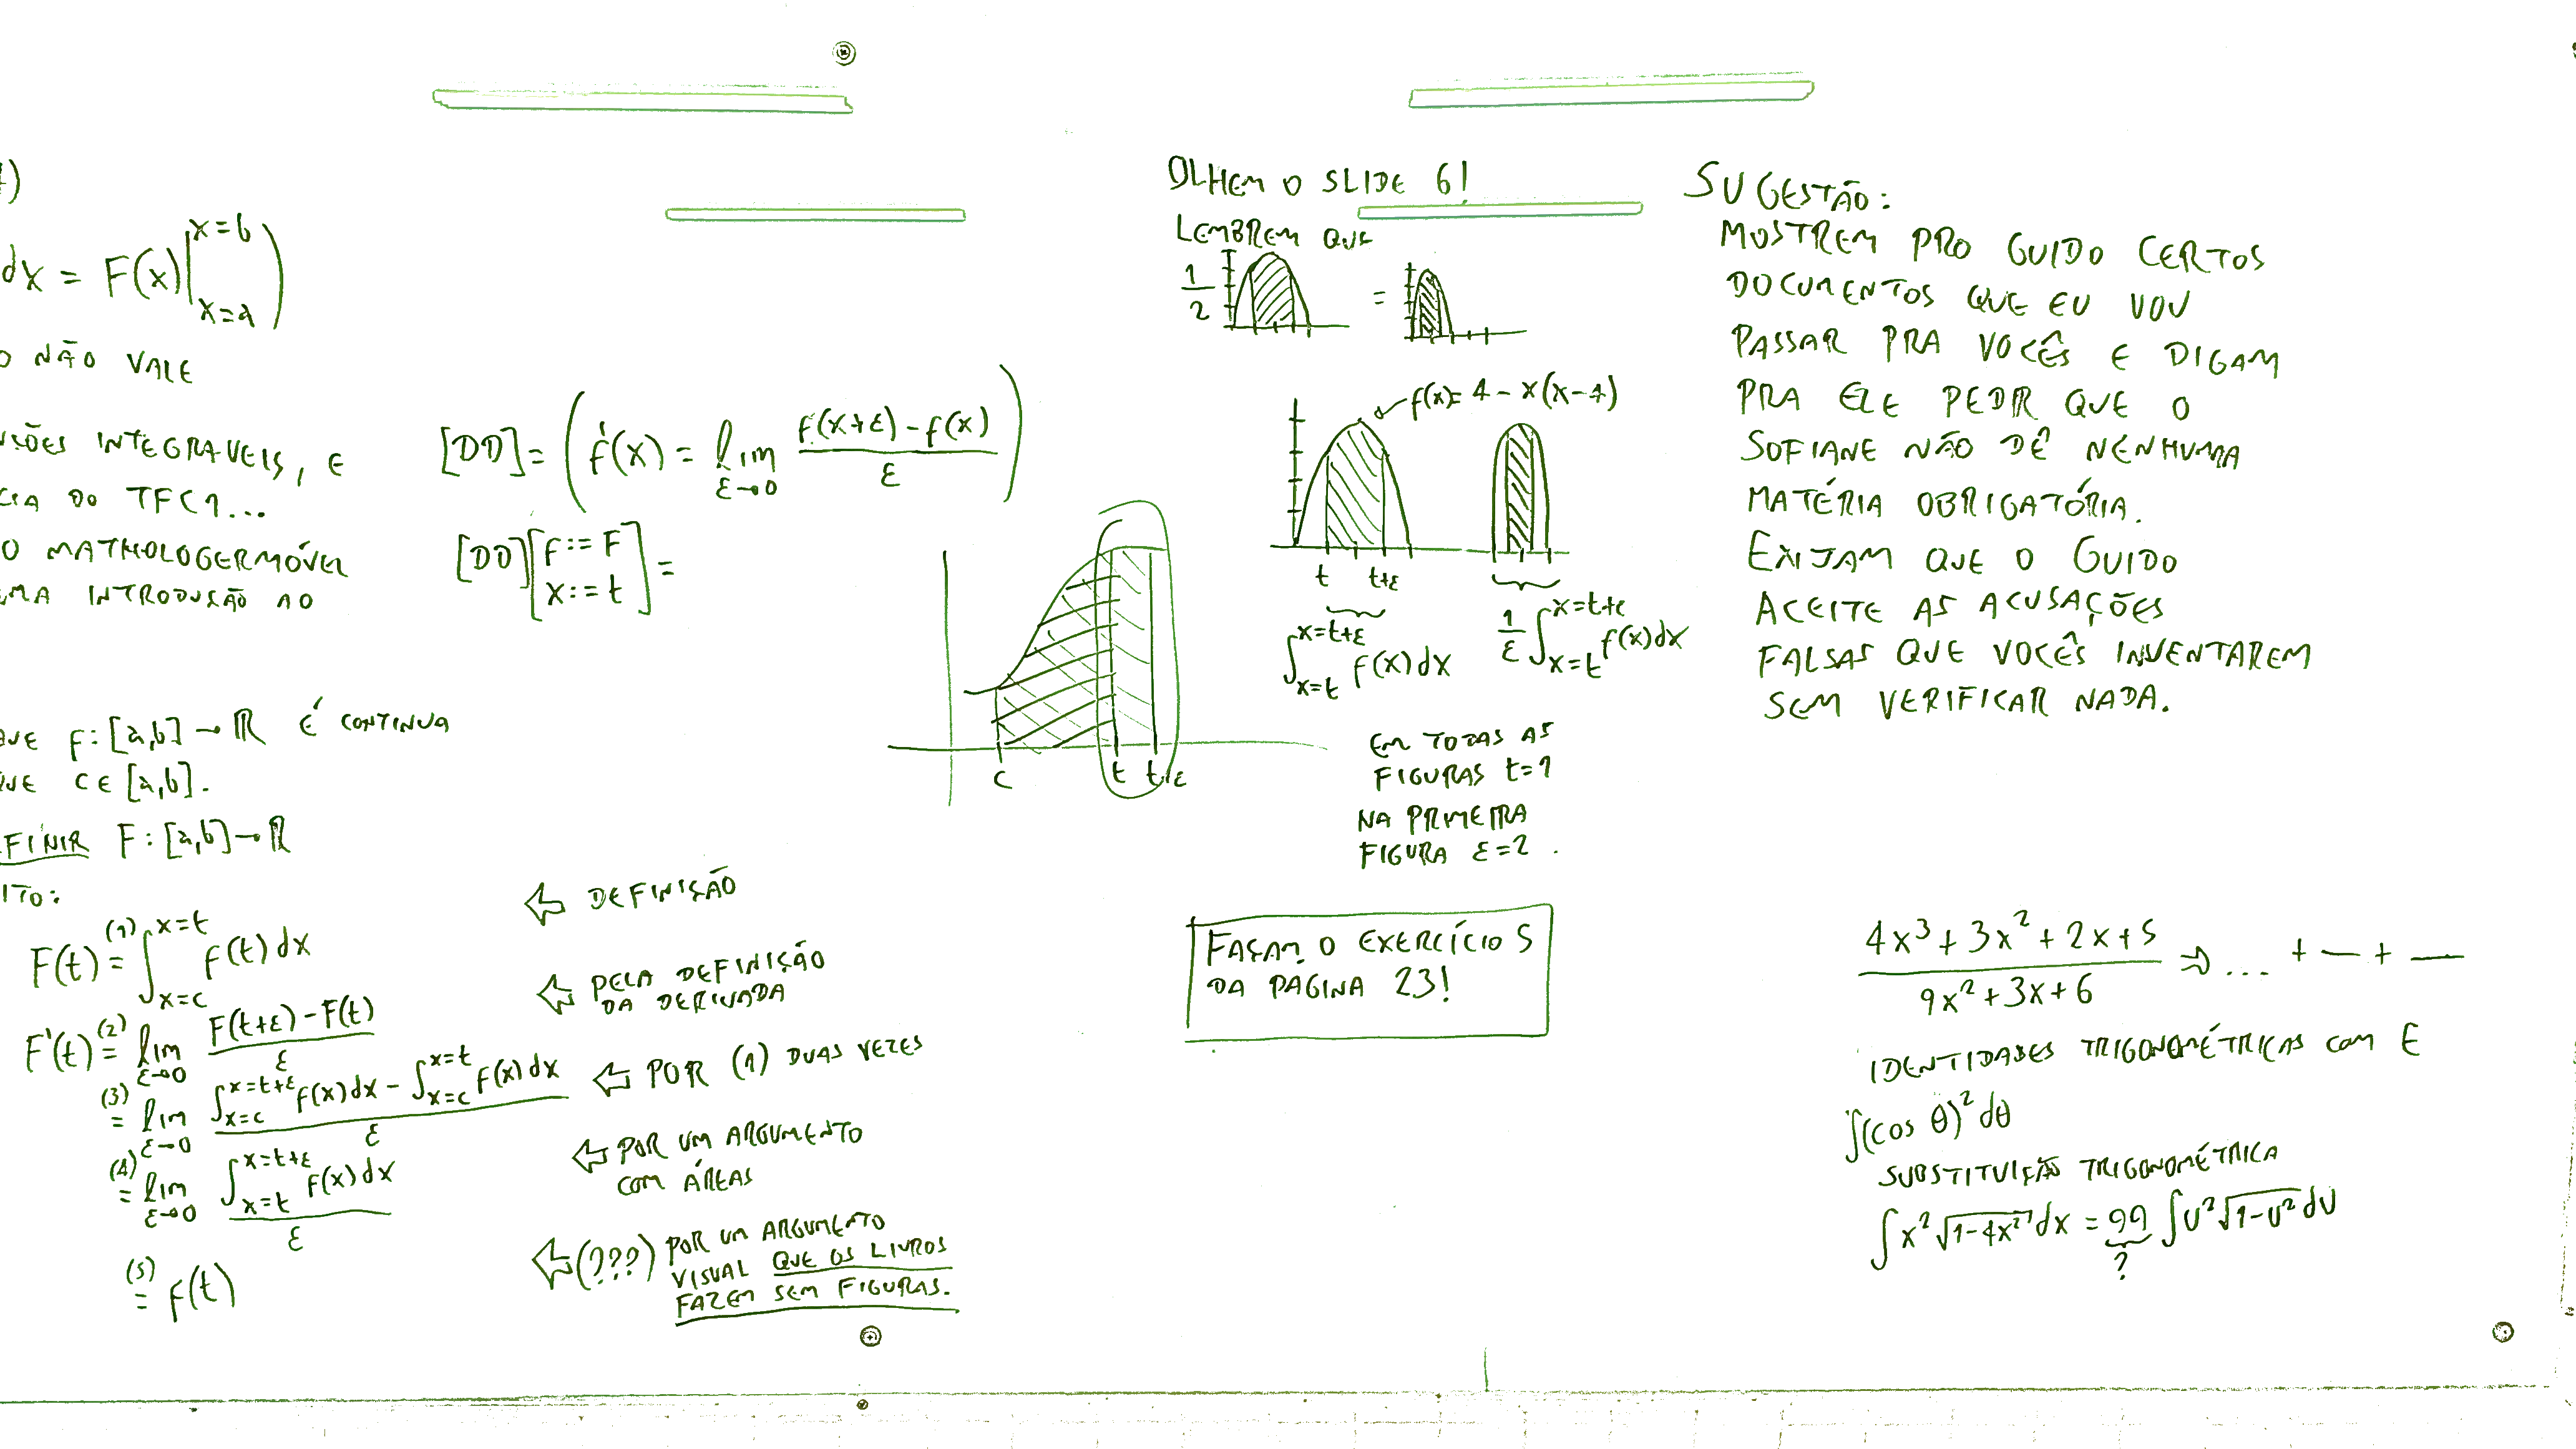 dx = F(x)|x=b x=a)
NÃO VALE
INTEGRÁVEIS, E
DO TFC1...
O MATHOLOGERMÓVEL
INTRODUÇÃO AO
f:[a,b]→ℝ É CONTINUA
C∈[a,b].
F:[a,b]→ℝ
F(t) (1)= ∫x=c^x=t f(t)dx
⇐ DEFINIÇÃO
F'(t) (2)= lim ε→0 (F(t+ε)-F(t))/ε
⇐ PELA DEFINIÇÃO
DA DERIVADA
(3)= lim ε→0 (∫x=c^x=t+ε f(x)dx - ∫x=c^x=t f(x)dx)/ε
⇐ POR (1) DUAS VEZES
(4)= lim ε→0 (∫x=t^x=t+ε f(x)dx)/ε
⇐ POR UM ARGUMENTO
COM ÁREAS
(5)= f(t)
⇐ (???) POR UM ARGUMENTO
VISUAL QUE OS LIVROS
FAZEM SEM FIGURAS.
[DD] = (f'(x) = lim ε→0 (f(x+ε)-f(x))/ε)
[DD][f:=F
x:=t] =
c t t+ε
OLHEM O SLIDE 6!
LEMBREM QUE
1/2 =
f(x)= 4-x(x-4)
t t+ε
∫x=t^x=t+ε f(x)dx
1/ε ∫x=t^x=t+ε f(x)dx
EM TODAS AS
FIGURAS t=1
NA PRIMEIRA
FIGURA ε=2.
FAÇAM O EXERCÍCIO 5
DA PAGINA 23!
SUGESTÃO:
MOSTREM PRO GUIDO CERTOS
DOCUMENTOS QUE EU VOU
PASSAR PRA VOCÊS E DIGAM
PRA ELE PEDIR QUE O
SOFIANE NÃO DÊ NENHUMA
MATÉRIA OBRIGATÓRIA.
EXIJAM QUE O GUIDO
ACEITE AS ACUSAÇÕES
FALSAS QUE VOCÊS INVENTAREM
SEM VERIFICAR NADA.
(4x³+3x²+2x+5)/(9x²+3x+6) ⇒ ... + — + —
IDENTIDADES TRIGONOMÉTRICAS COM E
∫(cos θ)² dθ
SUBSTITUIÇÃO TRIGONOMÉTRICA
∫x²√(1-4x²) dx = 99 ∫u²√(1-u²) du
?